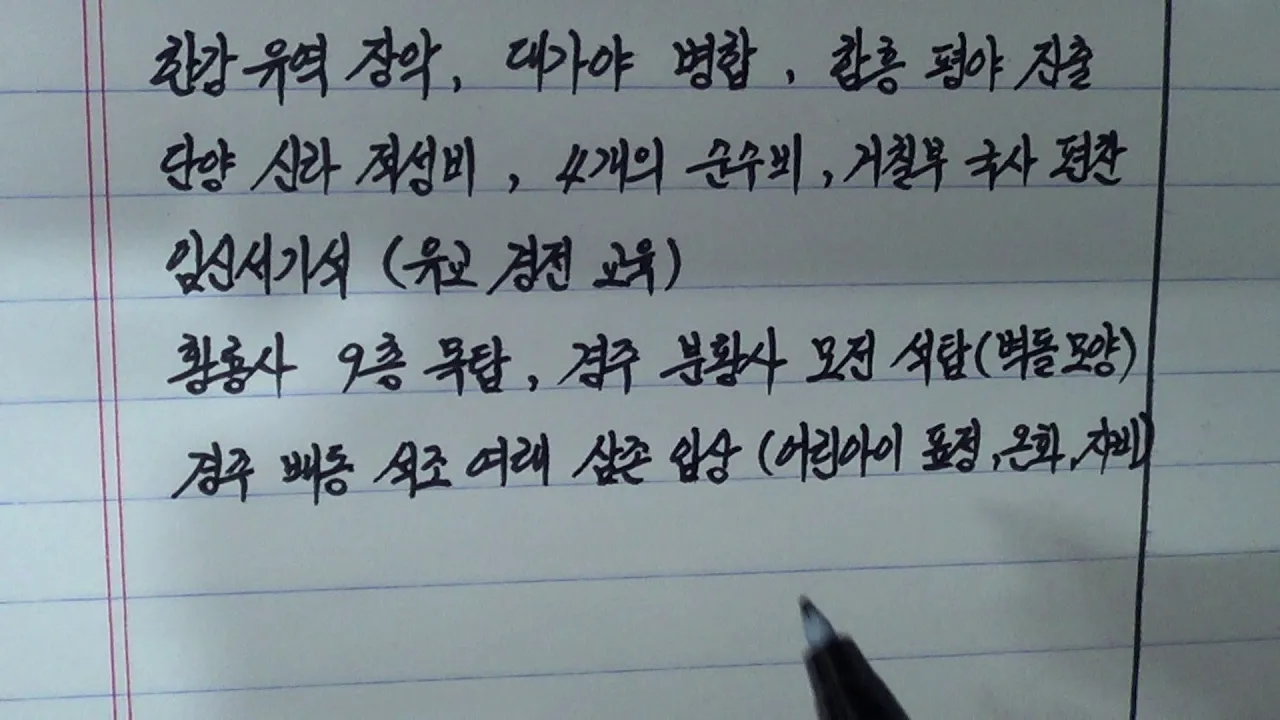 한강 유역 장악, 대가야 병합, 함흥 평야 진출
단양 신라 적성비, 4개의 순수비, 거칠부 국사 편찬
임신서기석 (유교 경전 교육)
황룡사 9층 목탑, 경주 분황사 모전 석탑(벽돌모양)
경주 배동 석조 여래 삼존 입상 (어린아이 표정, 온화, 자비)